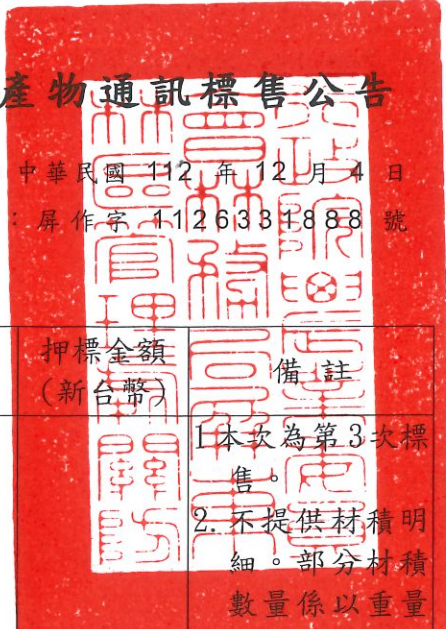 產物通訊標售公告
中華民國 112 年 12 月 4 日
:屏作字 1126331888 號
押標金額
(新台幣)
備註
1本次為第3次標
售。
2.不提供材積明
細。部分材積
數量係以重量